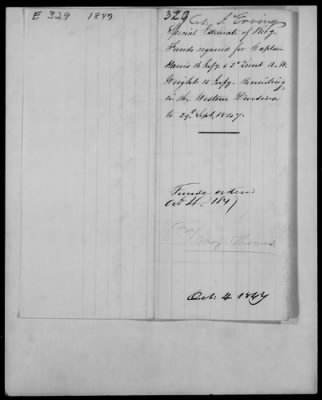 E 329 1847
329 Col. J. Erving
Special Estimate of
Funds required for Captain
16 Infy. & 2d Lieut A. W.
Wright 16 Infy. Recruiting
in the Western Division
to 29. Sept, 1847.
Funds
Oct 4. 1847
For
Maj Thomas
Oct. 4 1847